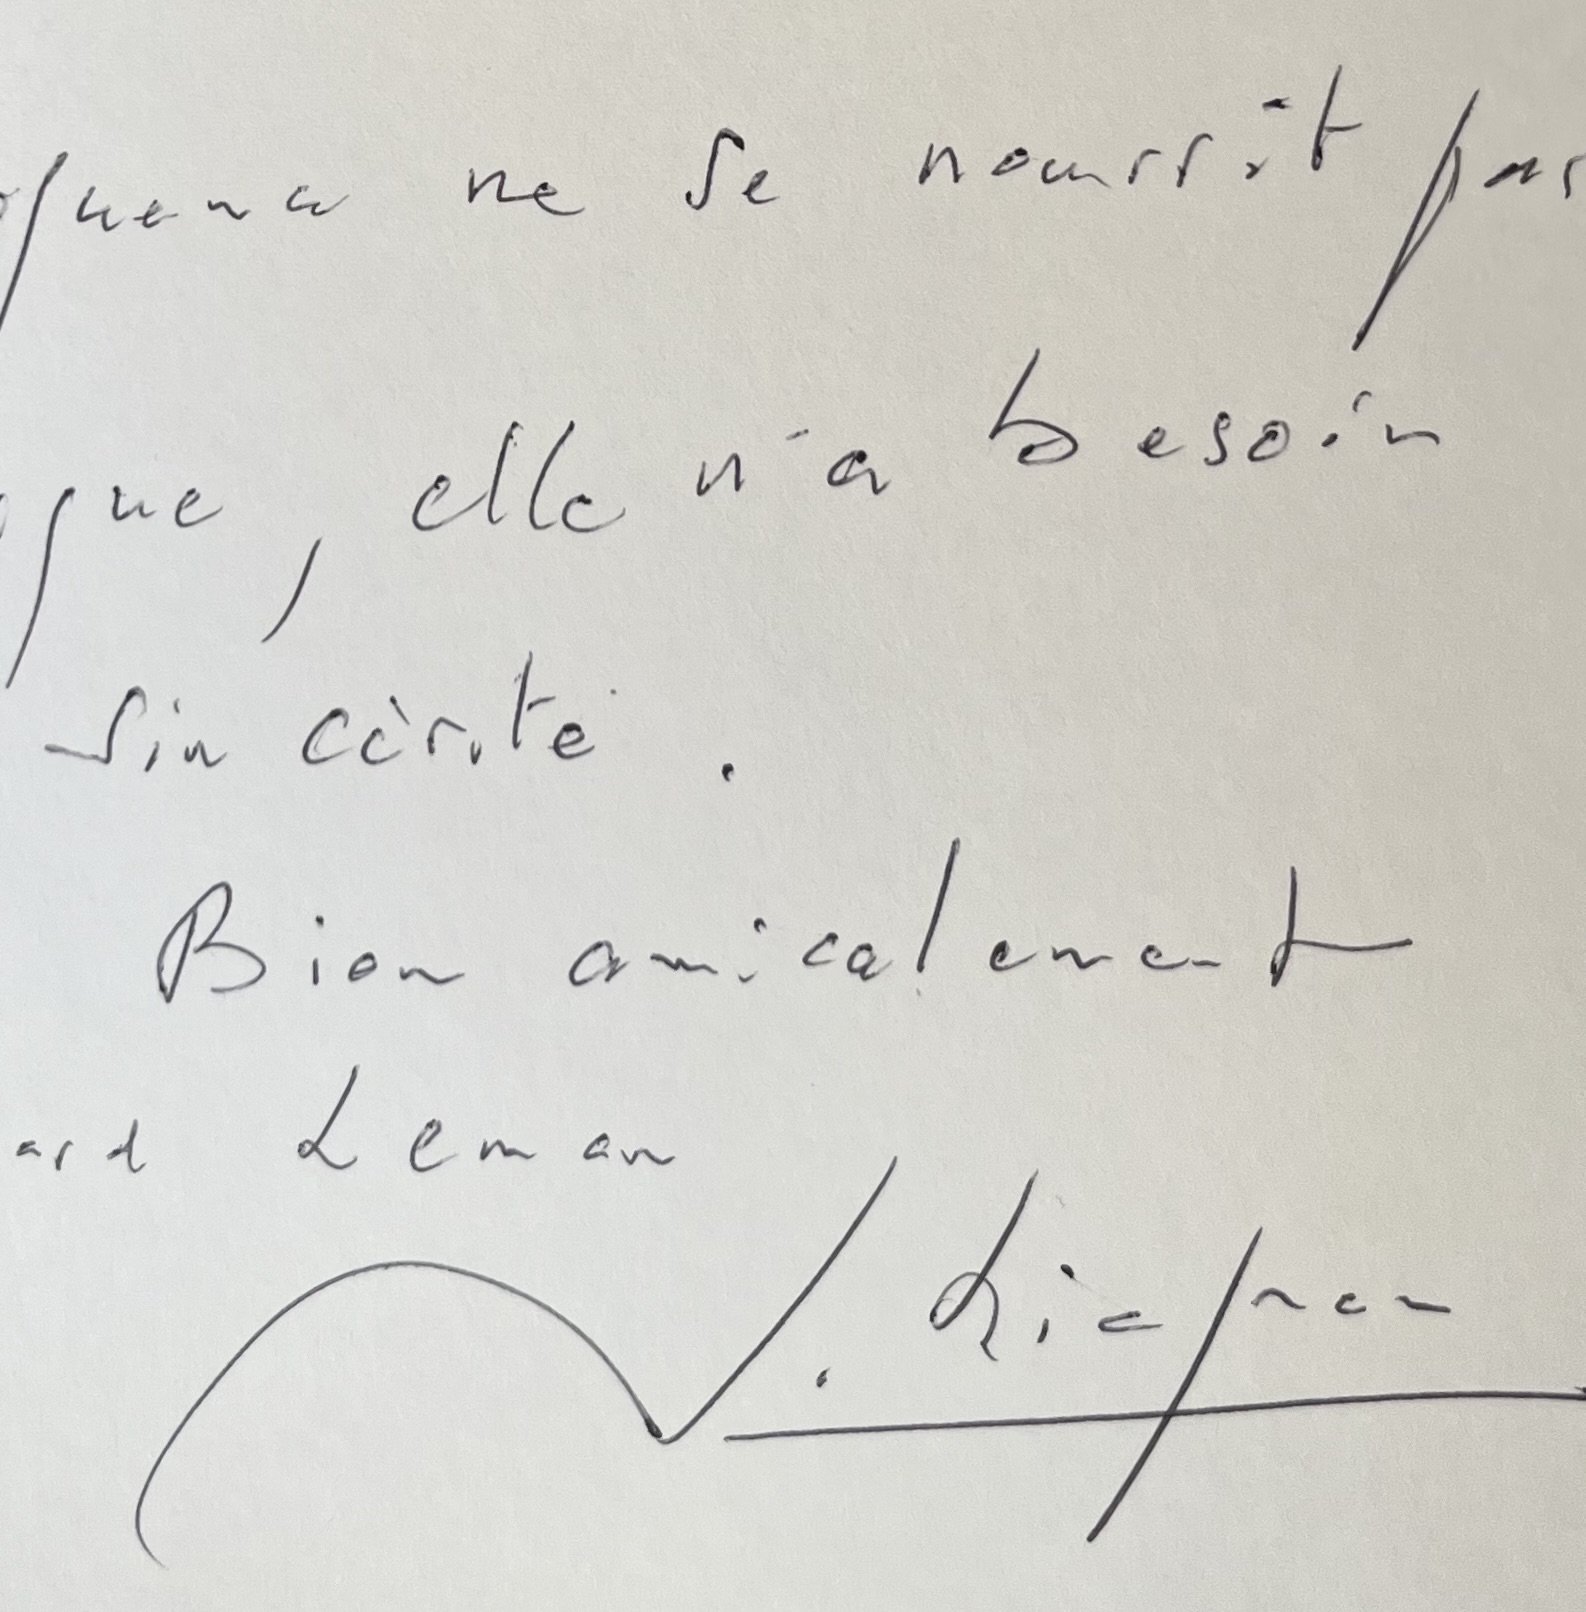 quence ne se nourrit pas
que, elle n'a besoin
sincérité.
Bien amicalement
ard Leman